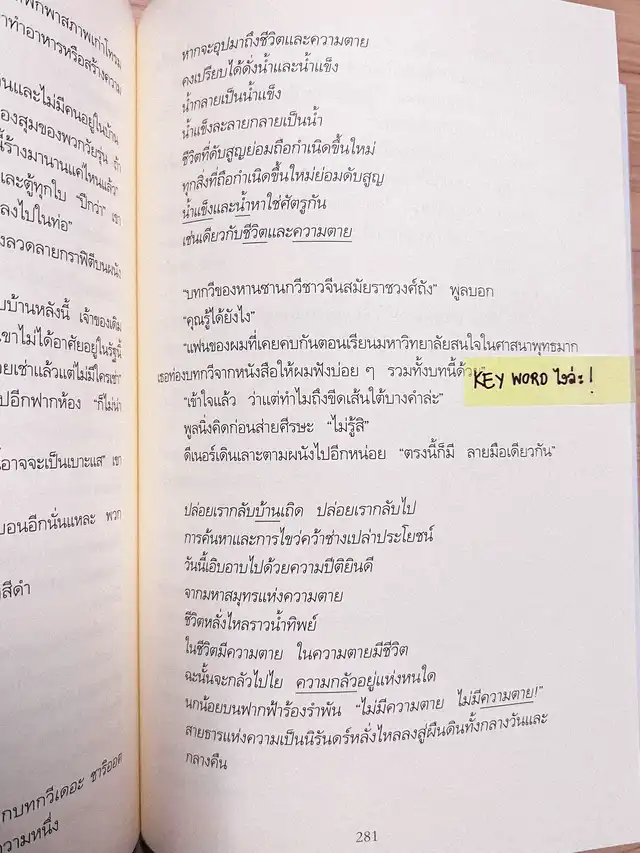 ฟักพาสภาพเก่าโทรม
าทำอาหารหรือสร้างความ
นและไม่มีคนอยู่ในบ้าน
องสุมของพวกวัยรุ่น ถ้า
นี้ร้างมานานแค่ไหนแล้ว"
และตู้ทุกใบ "ปีกว่า" เขา
ลงไปในท่อ"
งลวดลายกราฟิตีบนผนัง
บบ้านหลังนี้ เจ้าของเดิม
เขาไม่ได้อาศัยอยู่ในรัฐนี้
อยเช่าแล้วแต่ไม่มีใครเช่า"
ไปอีกฟากห้อง "ก็ไม่น่า
นี้อาจจะเป็นเบาะแส" เขา
บอนอีกนั่นแหละ พวก
สีดำ
กบทกวีเดอะ ชาริออต
ความหนึ่ง
หากจะอุปมาถึงชีวิตและความตาย
คงเปรียบได้ดั่งน้ำและน้ำแข็ง
น้ำกลายเป็นน้ำแข็ง
น้ำแข็งละลายกลายเป็นน้ำ
ชีวิตที่ดับสูญย่อมถือกำเนิดขึ้นใหม่
ทุกสิ่งที่ถือกำเนิดขึ้นใหม่ย่อมดับสูญ
น้ำแข็งและน้ำหาใช่ศัตรูกัน
เช่นเดียวกับชีวิตและความตาย
"บทกวีของหานซานกวีชาวจีนสมัยราชวงศ์ถัง" พูลบอก
"คุณรู้ได้ยังไง"
"แฟนของผมที่เคยคบกันตอนเรียนมหาวิทยาลัยสนใจในศาสนาพุทธมาก
เธอท่องบทกวีจากหนังสือให้ผมฟังบ่อย ๆ รวมทั้งบทนี้ด้วย"
KEY WORD ไงว่ะ!
"เข้าใจแล้ว ว่าแต่ทำไมถึงขีดเส้นใต้บางคำล่ะ"
พูลนิ่งคิดก่อนส่ายศีรษะ "ไม่รู้สิ"
ดีเนอร์เดินเลาะตามผนังไปอีกหน่อย "ตรงนี้ก็มี ลายมือเดียวกัน"
ปล่อยเรากลับบ้านเถิด ปล่อยเรากลับไป
การค้นหาและการไขว่คว้าช่างเปล่าประโยชน์
วันนี้เอิบอาบไปด้วยความปีติยินดี
จากมหาสมุทรแห่งความตาย
ชีวิตหลั่งไหลราวน้ำทิพย์
ในชีวิตมีความตาย ในความตายมีชีวิต
ฉะนั้นจะกลัวไปไย ความกลัวอยู่แห่งหนใด
นกน้อยบนฟากฟ้าร้องรำพัน "ไม่มีความตาย ไม่มีความตาย!"
สายธารแห่งความเป็นนิรันดร์หลั่งไหลลงสู่ผืนดินทั้งกลางวันและ
กลางคืน
281